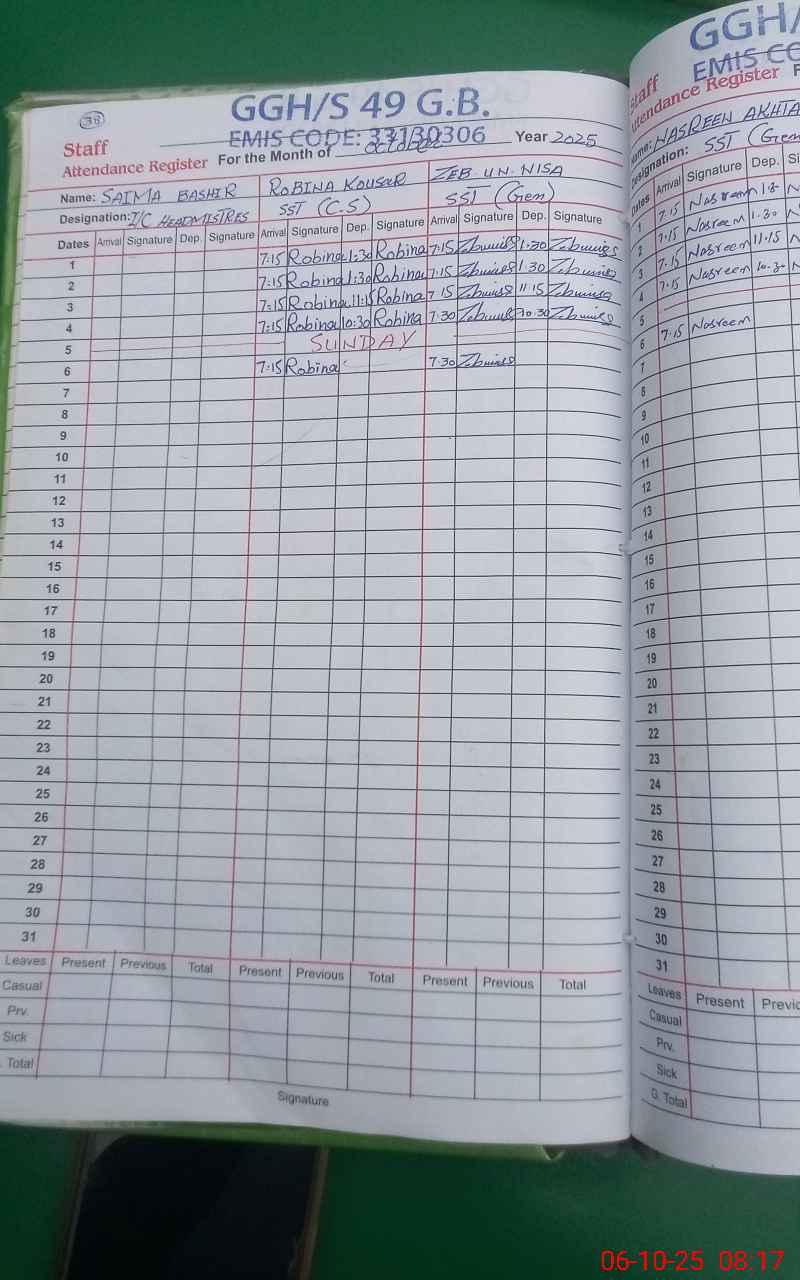 38
GGH/S 49 G.B.
EMIS CODE: 33130306
Staff
Attendance Register For the Month of October Year 2025
Name: SAIMA BASHIR ROBINA KOUSAR ZEB-UN-NISA
Designation: I/C HEADMISTRES SST (C.S) SST (Gen)
Dates Arrival Signature Dep. Signature Arrival Signature Dep. Signature Arrival Signature Dep. Signature
1 7:15 Robina 1:30 Robina 7:15 Zebunniss 1.30 Zebunniss
2 7:15 Robina 1:30 Robina 7:15 Zebunniss 1.30 Zebunniss
3 7:15 Robina 11:15 Robina 7 15 Zebunniss 11 15 Zebunniss
4 7:15 Robina 10:30 Robina 7.30 Zebunniss 10.30 Zebunniss
5 SUNDAY
6 7:15 Robina 7.30 Zebunniss
7
8
9
10
11
12
13
14
15
16
17
18
19
20
21
22
23
24
25
26
27
28
29
30
31
Leaves Present Previous Total Present Previous Total Present Previous Total
Casual
Prv.
Sick
. Total
Signature
GGH/
EMIS CO
Staff
ttendance Register F
me: NASREEN AKHTA
esignation: SST (Gen
ates Arrival Signature Dep. Si
1 7.15 Nasreen 1.30 N
2 7.15 Nasreen 1.30 N
3 7.15 Nasreen 11.15 N
4 7.15 Nasreen 10.30 N
5
6 7.15 Nasreen
7
8
9
10
11
12
13
14
15
16
17
18
19
20
21
22
23
24
25
26
27
28
29
30
31
Leaves Present Previo
Casual
Prv.
Sick
G. Total
06-10-25 08:17